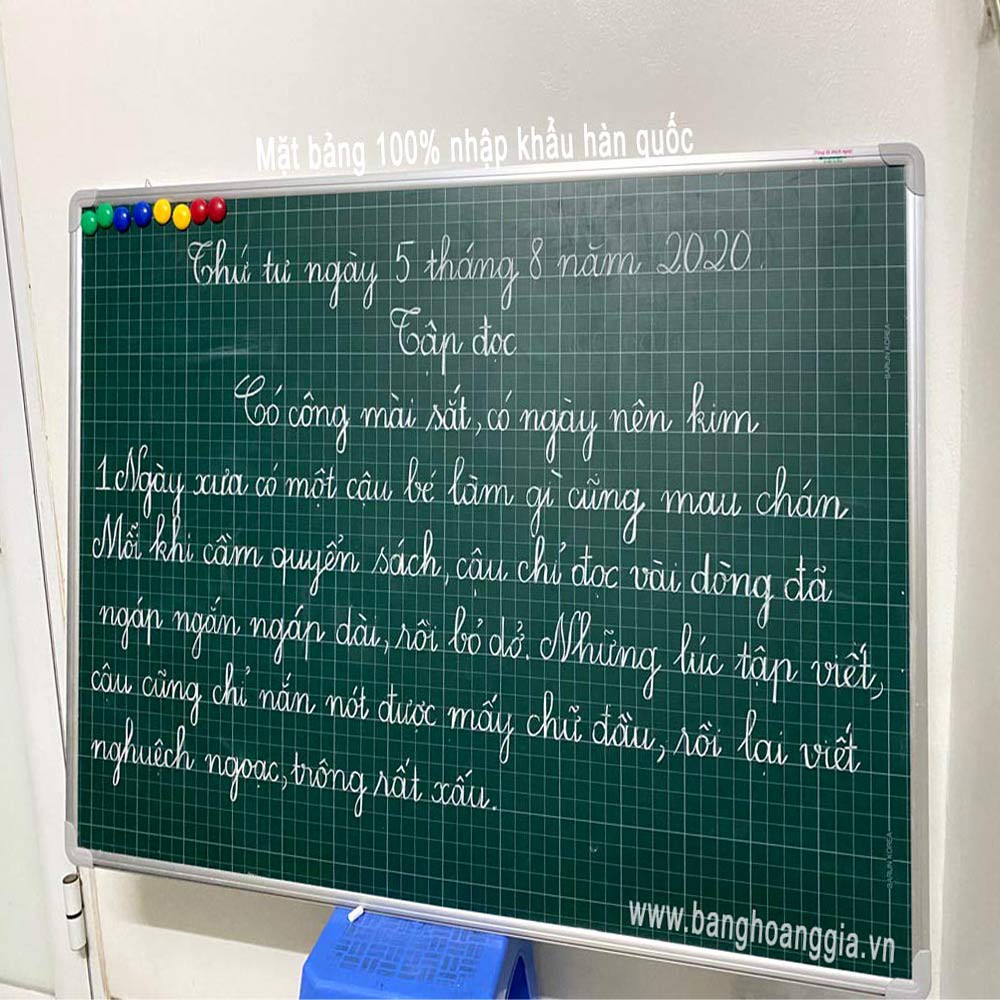 Mặt bảng 100% nhập khẩu hàn quốc
Thứ tư ngày 5 tháng 8 năm 2020.
Tập đọc
Có công mài sắt, có ngày nên kim
1. Ngày xưa có một cậu bé làm gì cũng mau chán
Mỗi khi cầm quyển sách, cậu chỉ đọc vài dòng đã
ngáp ngắn ngáp dài, rồi bỏ dở. Những lúc tập viết,
cậu cũng chỉ nắn nót được mấy chữ đầu, rồi lại viết
nghuệch ngoạc, trông rất xấu.
BARUN KOREA
BARUN KOREA
www.banghoanggia.vn